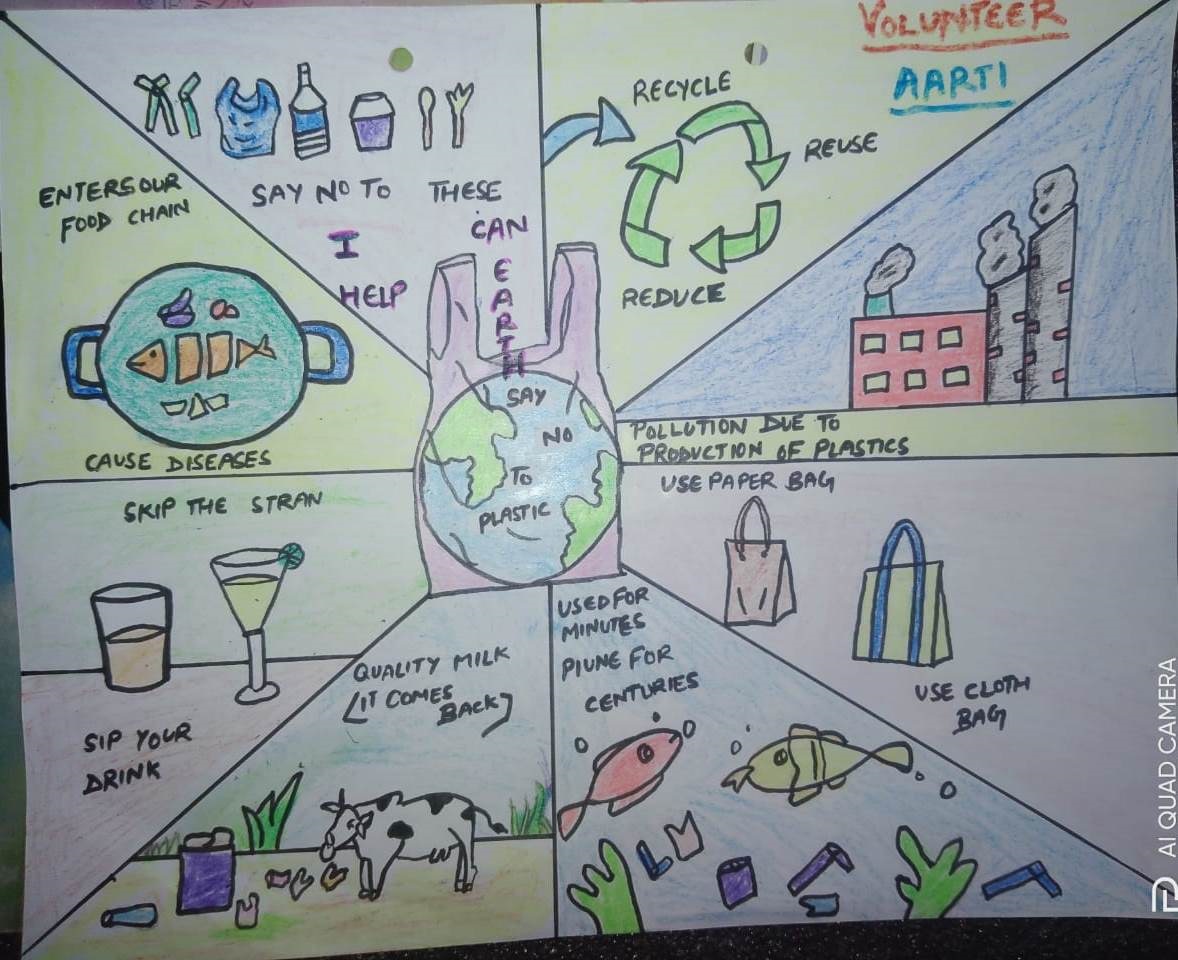 VOLUNTEER
AARTI
RECYCLE
REUSE
REDUCE
SAY NO TO THESE
I CAN
HELP
EARTH
ENTERS OUR
FOOD CHAIN
CAUSE DISEASES
SAY
NO
TO
PLASTIC
POLLUTION DUE TO
PRODUCTION OF PLASTICS
USE PAPER BAG
USE CLOTH
BAG
SKIP THE STRAN
SIP YOUR
DRINK
QUALITY MILK
[IT COMES
BACK]
USED FOR
MINUTES
PIUNE FOR
CENTURIES
AI QUAD CAMERA